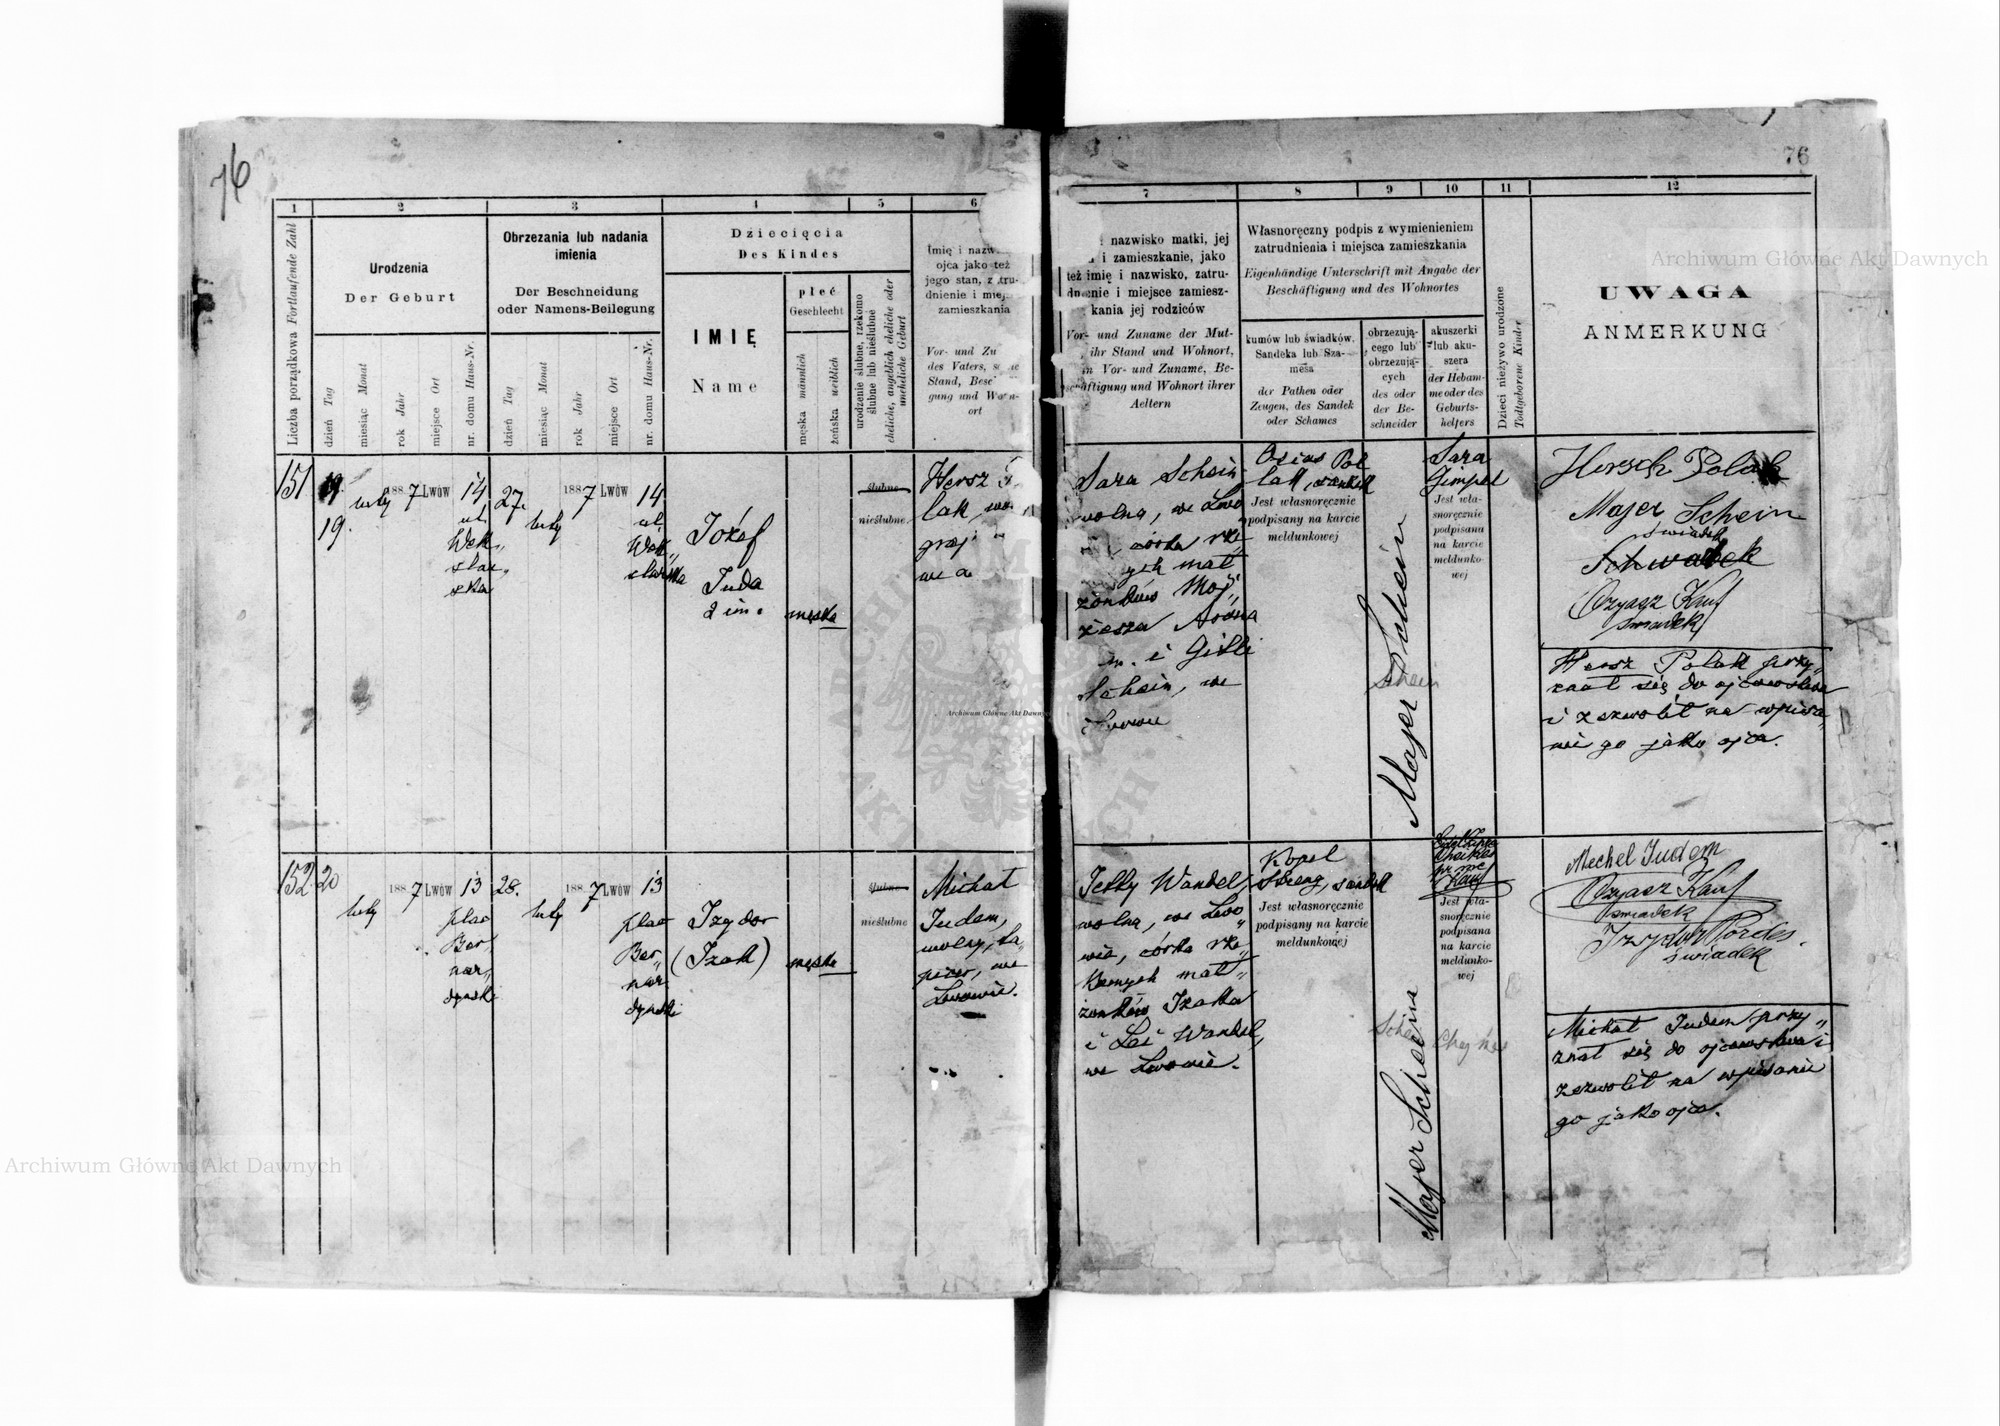 76
76
1
2
3
4
5
6
7
8
9
10
11
12
Liczba porządkowa Fortlaufende Zahl
Urodzenia
Der Geburt
dzień Tag
miesiąc Monat
rok Jahr
miejsce Ort
nr. domu Haus-Nr.
Obrzezania lub nadania
imienia
Der Beschneidung
oder Namens-Beilegung
dzień Tag
miesiąc Monat
rok Jahr
miejsce Ort
nr. domu Haus-Nr.
Dziecięcia
Des Kindes
IMIĘ
Name
płeć
Geschlecht
męska männlich
żeńska weiblich
urodzenie ślubne, rzekomo
ślubne lub nieślubne
eheliche, angeblich eheliche oder
uneheliche Geburt
Imię i nazw
ojca jako też
jego stan, zatru-
dnienie i miej
zamieszkania
Vor- und Zu
des Vaters, se
Stand, Besc
gung und Wohn-
ort
i nazwisko matki, jej
i zamieszkanie, jako
też imię i nazwisko, zatru-
dnienie i miejsce zamiesz-
kania jej rodziców
Vor- und Zuname der Mut-
ihr Stand und Wohnort,
Vor- und Zuname, Be-
schäftigung und Wohnort ihrer
Aeltern
Własnoręczny podpis z wymienieniem
zatrudnienia i miejsca zamieszkania
Eigenhändige Unterschrift mit Angabe der
Beschäftigung und des Wohnortes
kumów lub świadków.
Sandeka lub Sza-
mesa
der Pathen oder
Zeugen, des Sandek
oder Schames
obrzezują-
cego lub
obrzezują-
cych
des oder
der Be-
schneider
akuszerki
lub aku-
szera
der Hebam-
me oder des
Geburts-
helfers
Dzieci nieżywo urodzone
Todtgeborene Kinder
UWAGA
ANMERKUNG
151
19.
luty
1887
Lwów
14
ul.
Wek„
slar„
ska
27.
luty
1887
Lwów
14
ul.
Wek„
slarska
Józef
Juda
2 im.
męska
ślubne
nieślubne
Hersz
lak, wo
graj
we
Sara Schein
wolna, we Lwo
córka rze„
mał
żonków Moj„
żesza
i Gitli
Schein, we
Lwowie
Osias Pol
lak, sandek
Jest własnoręcznie
podpisany na karcie
meldunkowej
Schein
Majer Schein
Sara
Gimpel
Jest wła-
snoręcznie
podpisana
na karcie
meldunko-
wej
Hersch Polak
Majer Schein
świadek
Ozyasz Kauf
świadek
Hersz Polak przy„
znał się do ojcowstwa
i zezwolił na wpisa„
nie go jako ojca.
152
20
luty
1887
Lwów
13
plac
Ber
nar„
dyński
28.
luty
1887
Lwów
13
plac
Ber„
nar
dyński
Izydor
(Izak)
męska
ślubne
nieślubne
Michał
Judem,
wolny, ta„
picer, we
Lwowie.
Jetty Wandel,
wolna, we Lwo„
wie, córka rze„
komych mał„
żonków Izaka
i Lei Wandel,
we Lwowie.
Kopel
sandek
Jest własnoręcznie
podpisany na karcie
meldunkowej
Schein
Majer Schein
Kauf
Jest wła-
snoręcznie
podpisana
na karcie
meldunko-
wej
Mechel Judem
Ozyasz Kauf
świadek
Izydor Pordes.
świadek
Michał Judem przy„
znał się do ojcowstwa i
zezwolił na wpisanie
go jako ojca.
Archiwum Główne Akt Dawnych
Archiwum Główne Akt Dawnych
Archiwum Główne Akt Dawnych